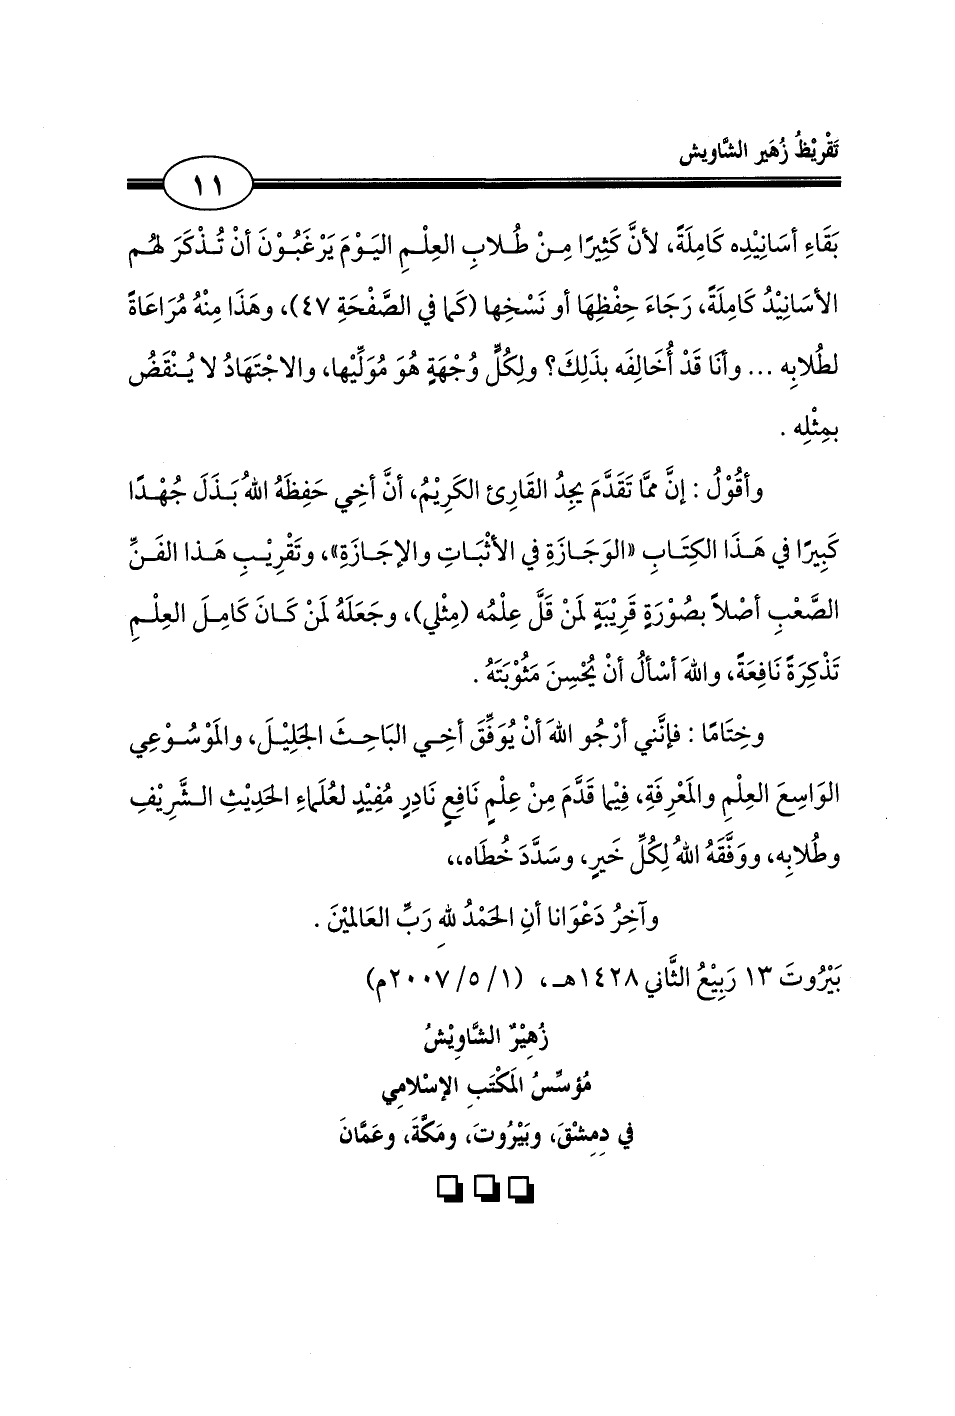 تَقْرِيْظُ زُهَير الشَّاويش
١١
بَقَاءِ أسَانِيْدِه كَامِلَةً، لأنَّ كَثِيرًا مِنْ طُلابِ العِلْمِ اليَوْمَ يَرْغَبُوْنَ أنْ تُذْكَرَ لهُم
الأسَانِيْدُ كَامِلَةً، رَجَاءَ حِفْظِهَا أو نَسْخِها (كَما في الصَّفْحَةِ ٤٧)، وهَذَا مِنْهُ مُرَاعَاةً
لطُلابِه ... وأنَا قَدْ أُخَالِفَه بذَلِكَ؟ ولِكُلٍّ وُجْهَةٍ هُوَ مُوَلِّيْها، والاجْتِهَادُ لا يُنْقَضُ
بمِثْلِه .
وأقُوْلُ : إنَّ ممَّا تَقَدَّمَ يجِدُ القَارِئ الكَرِيْمُ، أنَّ أخِي حَفِظَهُ اللهُ بَذَلَ جُهْدًا
كَبِيرًا في هَذَا الكِتَابِ «الوَجَازَةِ في الأثْبَاتِ والإجَازَةِ»، وتَقْرِيْبِ هَذا الفَنِّ
الصَّعْبِ أصْلاً بصُوْرَةٍ قَرِيْبَةٍ لمَنْ قَلَّ عِلْمُه (مِثْلي)، وجَعَلَهُ لمَنْ كَانَ كَامِلَ العِلْمِ
تَذْكِرَةً نَافِعَةً، واللهَ أسْألُ أنْ يُحْسِنَ مَثُوْبَتَهُ .
وخِتَامًا : فإنَّني أرْجُو اللهَ أنْ يُوَفِّقَ أخِي البَاحِثَ الجَلِيْلَ، والمَوْسُوْعِي
الوَاسِعَ العِلْمِ والمَعْرِفَةِ، فِيْما قَدَّمَ مِنْ عِلْمٍ نَافِعٍ نَادِرٍ مُفِيْدٍ لعُلَماءِ الحَدِيْثِ الشَّرِيْفِ
وطُلابِه، ووَفَّقَهُ اللهُ لِكُلِّ خَيرٍ، وسَدَّدَ خُطَاه،،
وآخِرُ دَعْوَانا أنِ الحَمْدُ للهِ رَبِّ العَالمِيْنَ .
بَيْرُوتَ ١٣ رَبِيْعُ الثَّاني ١٤٢٨هـ، (١/ ٥/ ٢٠٠٧م)
زُهِيْرُ الشَّاوِيْشُ
مُؤسِّسُ المَكْتَبِ الإسْلامِي
في دِمِشْقَ، وبَيْرُوتَ، ومَكَّةَ، وعَمَّانَ